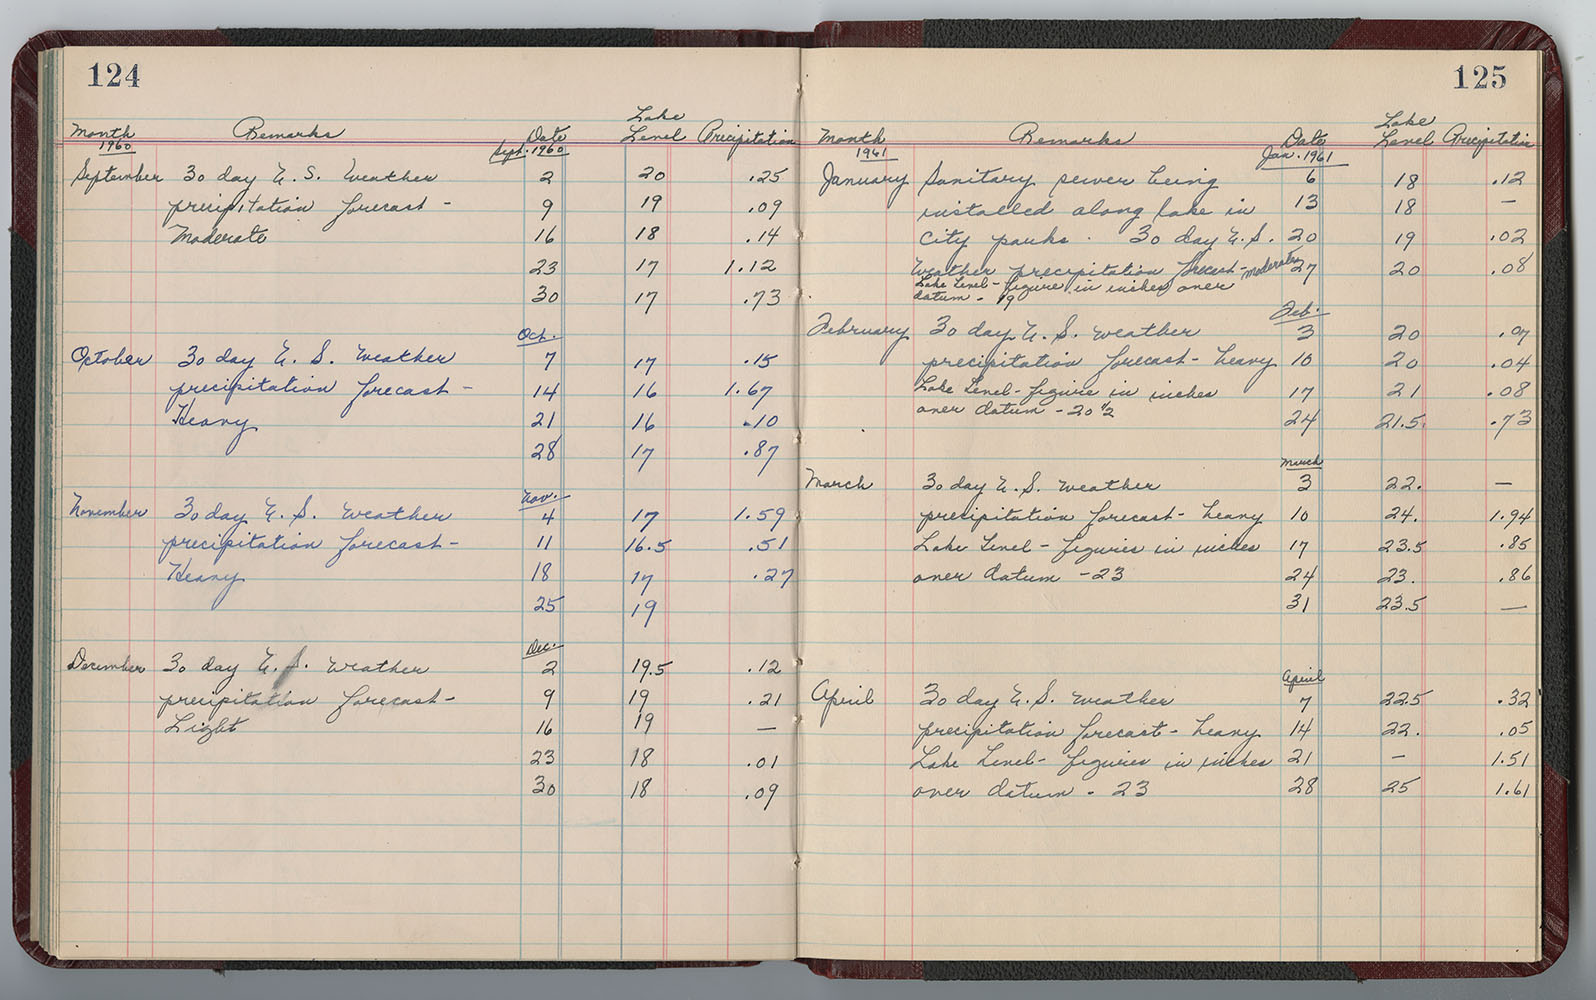 124
Month Remarks Date Lake Level Precipitation
1960 Sept. 1960
September 30 day U.S. Weather 2 20 .25
precipitation forecast - 9 19 .09
Moderate 16 18 .14
23 17 1.12
30 17 .73
Oct.
October 30 day U.S. Weather 7 17 .15
precipitation forecast - 14 16 1.67
Heavy 21 16 .10
28 17 .87
Nov.
November 30 day U.S. Weather 4 17 1.59
precipitation forecast - 11 16.5 .51
Heavy 18 17 .27
25 19
Dec.
December 30 day U.S. Weather 2 19.5 .12
precipitation forecast - 9 19 .21
Light 16 19 —
23 18 .01
30 18 .09
125
Month Remarks Date Lake Level Precipitation
1961 Jan. 1961
January Sanitary sewer being 6 18 .12
installed along lake in 13 18 —
City parks. 30 day U.S. 20 19 .02
Weather precipitation forecast - moderate 27 20 .08
Lake Level - figure in inches over
datum - 19
Feb.
February 30 day U.S. Weather 3 20 .07
precipitation forecast - heavy 10 20 .04
Lake Level - figure in inches 17 21 .08
over datum - 20 1/2 24 21.5 .73
March
March 30 day U.S. Weather 3 22. —
precipitation forecast - heavy 10 24. 1.94
Lake Level - figures in inches 17 23.5 .85
over datum - 23 24 23. .86
31 23.5 —
April
April 30 day U.S. Weather 7 22.5 .32
precipitation forecast - heavy 14 22. .05
Lake Level - figures in inches 21 — 1.51
over datum - 23 28 25 1.61